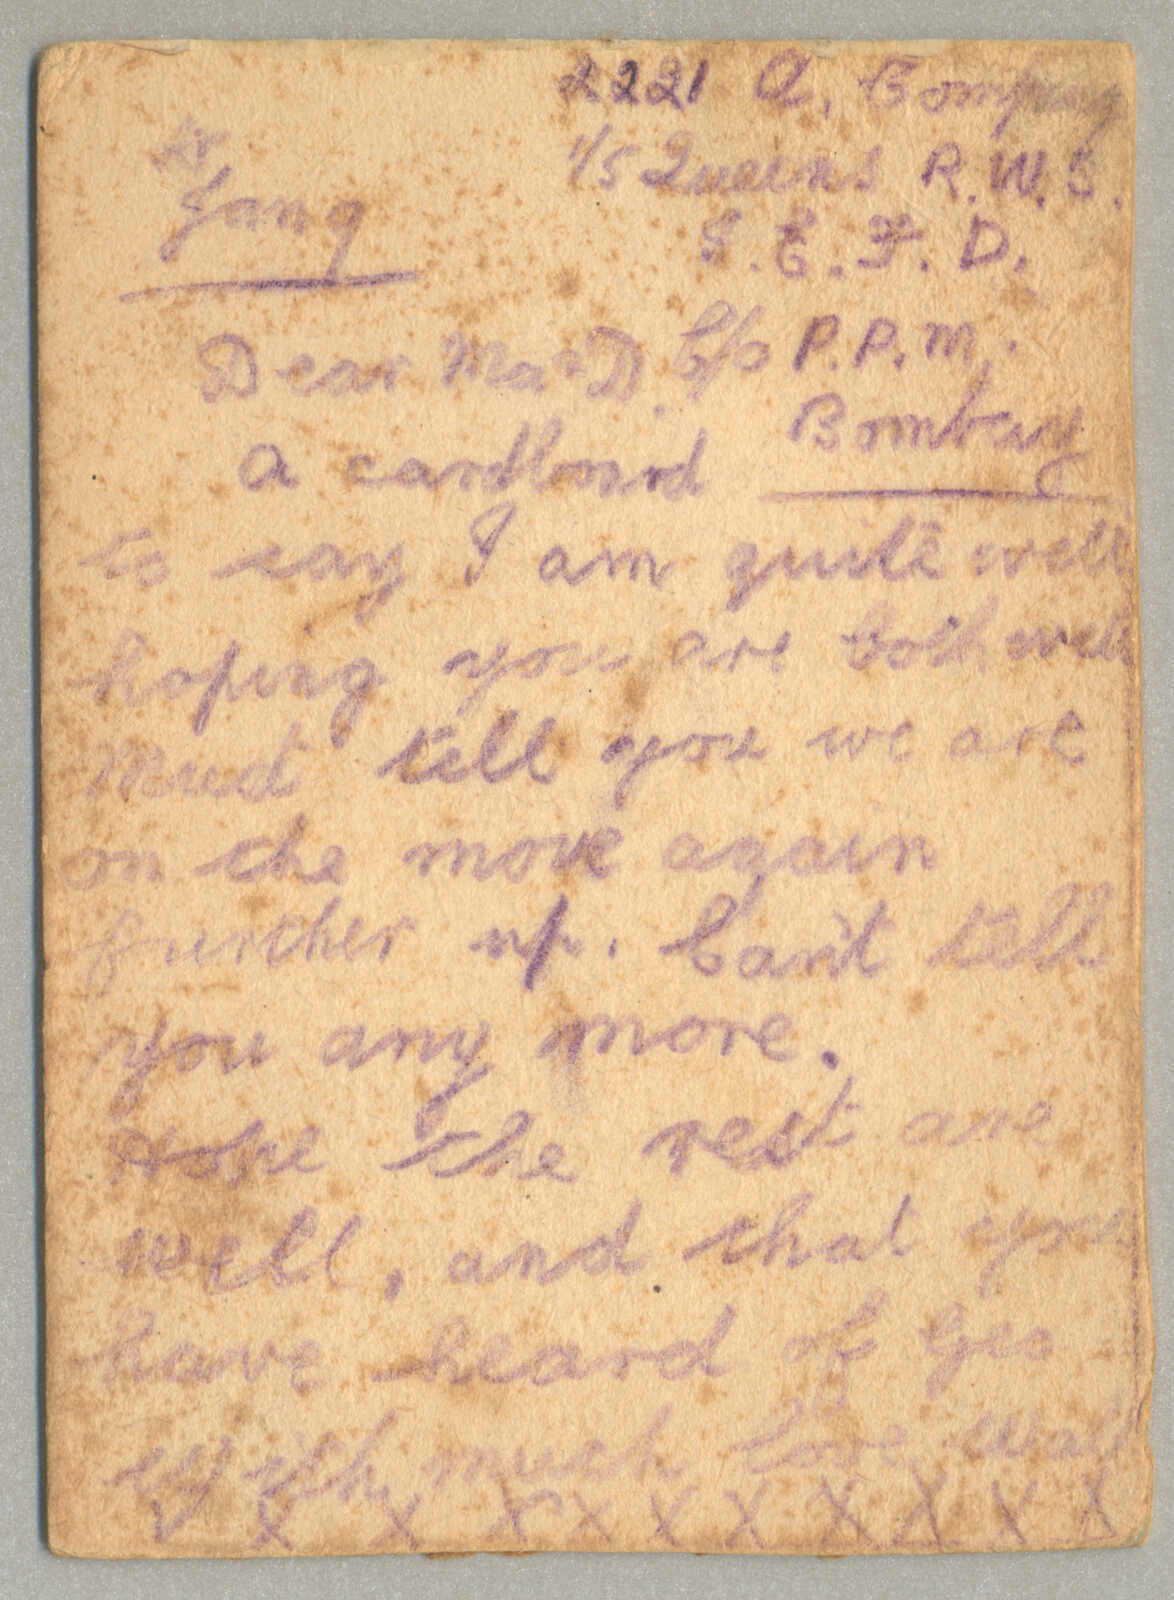 2221 A. Company
1/5 Queens R.W.S.
Jan 9
I.E.F.D.
C/o P.P.M.
Bombay
Dear Ma & D.
A cardboard
to say I am quite well
hoping you are both well
Must tell you we are
on the move again
further up. Can't tell
you any more.
Hope the rest are
well, and that you
have heard of Geo
With much love Walt
X X X X X X X X X X